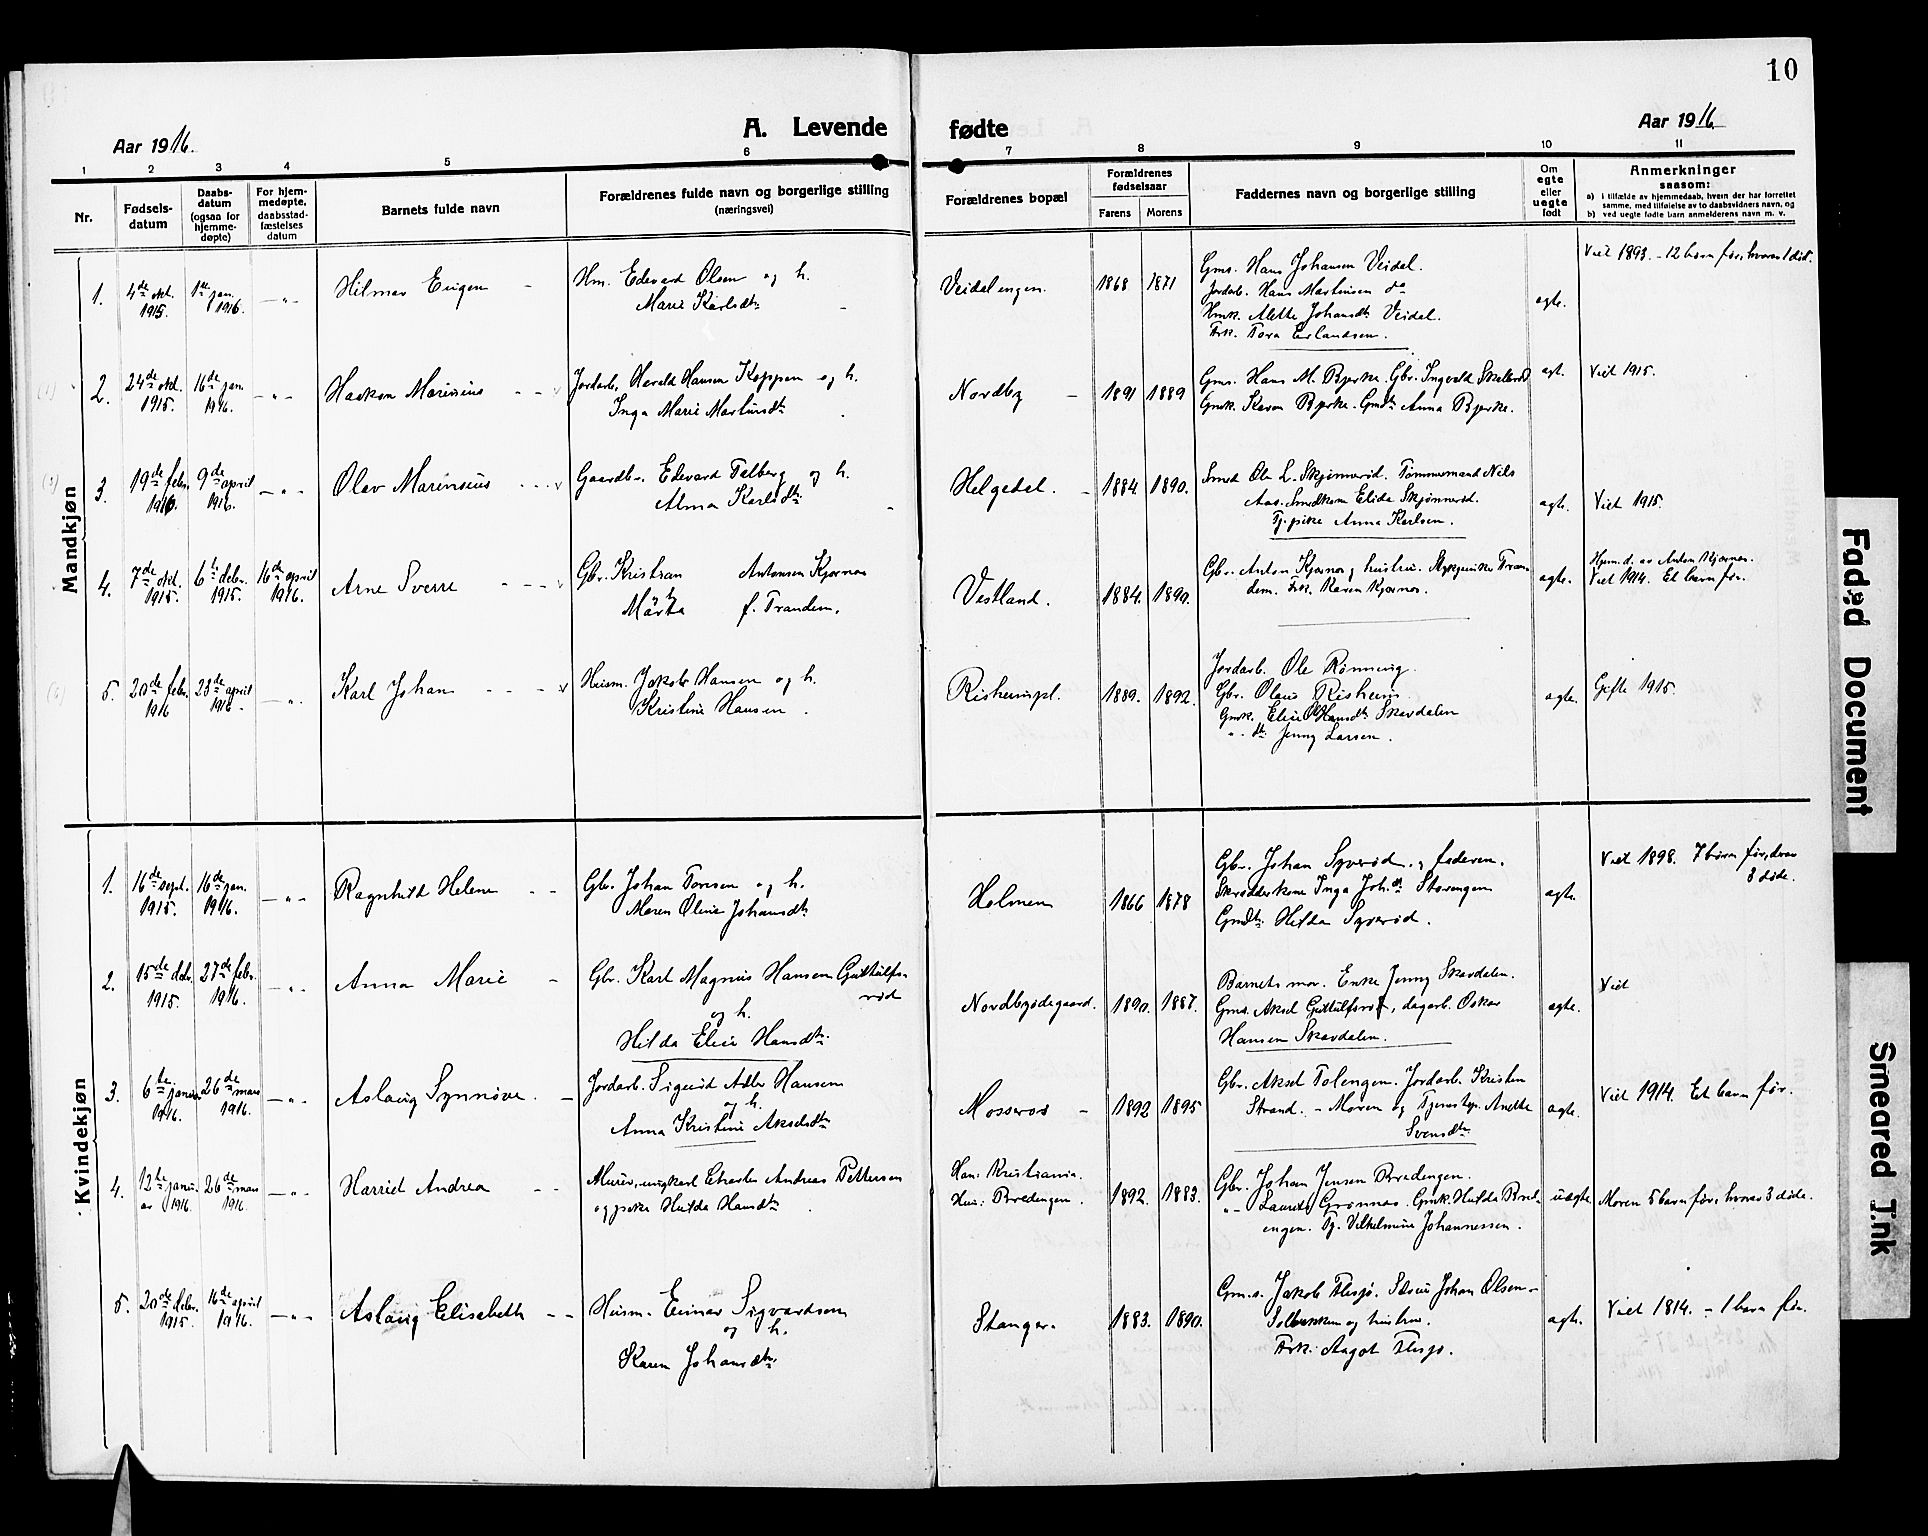 10
Aar 1916.
A. Levende fødte
Aar 1916
1 2 3 4 5 6 7 8 9 10 11
Nr.
Fødselsdatum
Daabsdatum (ogsaa for hjemmedøpte)
For hjemmedøpte, daabsstadfæstelses datum
Barnets fulde navn
Forældrenes fulde navn og borgerlige stilling
(næringsvei)
Forældrenes bopæl
Forældrenes fødselsaar
Farens
Morens
Faddernes navn og borgerlige stilling
Om egte eller uegte født
Anmerkninger
saasom:
a) i tilfælde av hjemmedaab, hvem der har forrettet
samme, med tilføielse av to daabsvidners navn, og
b) ved uegte fødte barn anmelderens navn m. v.
Mandkjøn
1. 4de okt. 1915. 1ste jan. 1916. — „ — Hilmar Eugen
Hm. Edevard Olsen og h.
Marie Karlsdtr
Veidalengen. 1868 1871
Gms. Hans Johansen Veidal.
Jordarb. Hans Martinsen do
Hmk. Alette Johansdtr Veidal.
Frk. Tora Erlandsen.
egte.
Viet 1893. - 12 barn før, hvorav 1 død.
2. 24de okt. 1915. 16de jan. 1916. — „ — Haakon Marinius
Jordarb. Harald Hansen Koppen og h.
Inga Marie Martinsdtr
Nordby 1891 1889
Gms. Hans M. Bjerke. Gbr. Ingvald Skellerød
Gmk. Karen Bjerke. Gmdtr Anna Bjerke.
egt.
Viet 1915.
3. 19de febr. 1916. 9de april 1916. — „ — Olav Marinius
Gaardbr. Edevard Telberg og h.
Alma Karlsdtr
Helgedal. 1884 1890.
Smed Ole L. Skjønnerød. Tømmermand Nils
Aas. Smedkone Elida Skjønnerød.
Tj.pike Anna Karlsen.
egte.
Viet 1915.
4. 7de okt. 1915. 6te debr. 1915. 16de april 1916. Arne Sverre
Gbr. Kristian Antonsen Kjærnes
og h.
Marta f. Trandem.
Vestland. 1884. 1890.
Gbr. Anton Kjærnes og hustru. Trandem. Frk. Karen Kjærnes.
egte.
Hjem.d. av Anton Kjærnes.
Viet 1914. Et barn før.
5. 20de febr. 1916 23de april 1916. — „ — Karl Johan
Husm. Jakob Hansen og h.
Kristine Hansen.
Risheimpl. 1889. 1892.
Jordarb. Ole Rønning.
Gbr. Olaus Risheim.
Gmk. Elise Hansdtr Skavdalen
„ dtr Jenny Larsen.
egte.
Gifte 1915.
Kvindekjøn
1. 16de sept. 1915. 16de jan. 1916. — „ — Ragnhild Helene
Gbr. Johan Toresen og h.
Maren Oline Johansdtr
Holmen 1866 1878
Gbr. Johan Syverød. og faderen.
Skrædderkone Inga Joh.dtr Storengen
Gmdtr. Hilda Syverød.
egte.
Viet 1898. 7 barn før, derav
3 døde.
2. 15de debr. 1915. 27de febr. 1916. — „ — Anna Marie
Gbr. Karl Magnus Hansen Guttulfsrød
og h.
Hilda Elise Hansdtr.
Nordbyødegaard. 1890. 1887.
Barnets mor. Enke Jenny Skavdalen.
Gms. Aksel Guttulfsrød, dagarb. Oskar
Hansen Skavdalen.
egte.
Viet
3. 6te januar 1916. 26de mars 1916. — „ — Aslaug Synnøve.
Jordarb. Sigurd Adler Hansen
og h.
Anna Kristine Akselsdtr
Mosserøs 1892 1895
Gbr. Aksel Tolengen. Jordarb. Kristen
Strand. - Moren og Tjenestp. Anette
Svensdtr.
egte.
Viet 1914. Et barn før.
4. 12te januar 1916. 26de mars 1916. — „ — Harriet Andrea
Murer, ungkarl Charles Andreas Pettersen
og pike Hulda Hansdtr
Han: Kristiania.
Hun: Bredengen. 1892. 1883.
Gbr. Johan Jensen Bredengen.
„ - Laurits Grønnes. Gmk. Hulda Bredengen. Tj. Vilhelmine Johannessen.
uegte.
Moren 5 barn før, hvorav 3 døde.
5. 20de debr. 1915. 16de april 1916. — „ — Aslaug Elisabeth
Husm. Einar Sigvardsen
og h.
Karen Johansdtr.
Stanger. 1883. 1890.
Gm.s. Jakob Flesjø. Johan Olsen
Solbakken og hustru.
Frk. Aagot Flesjø.
egte.
Viet 1814. - 1 barn før.
Faded Document
Smeared Ink